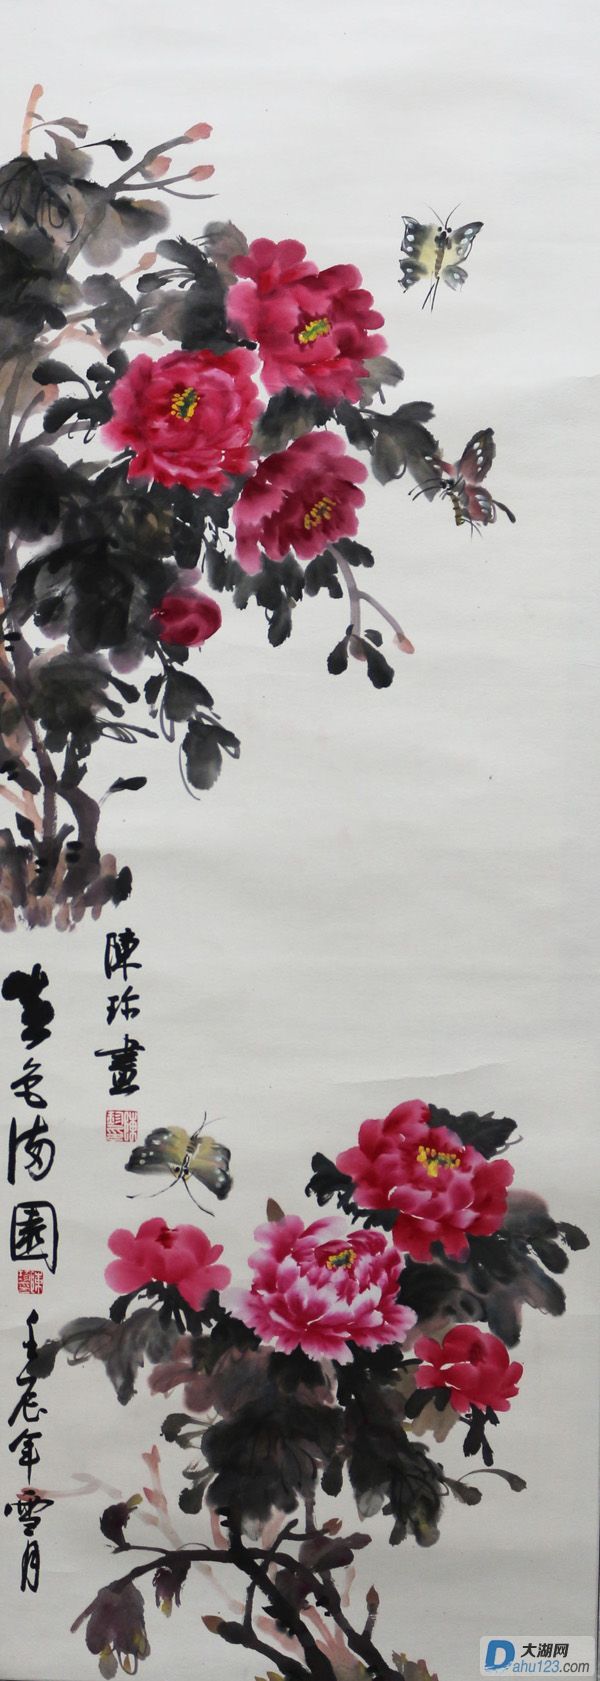 春色满園
壬辰年雪月
陳珍畫
大湖网
Dahu123.com